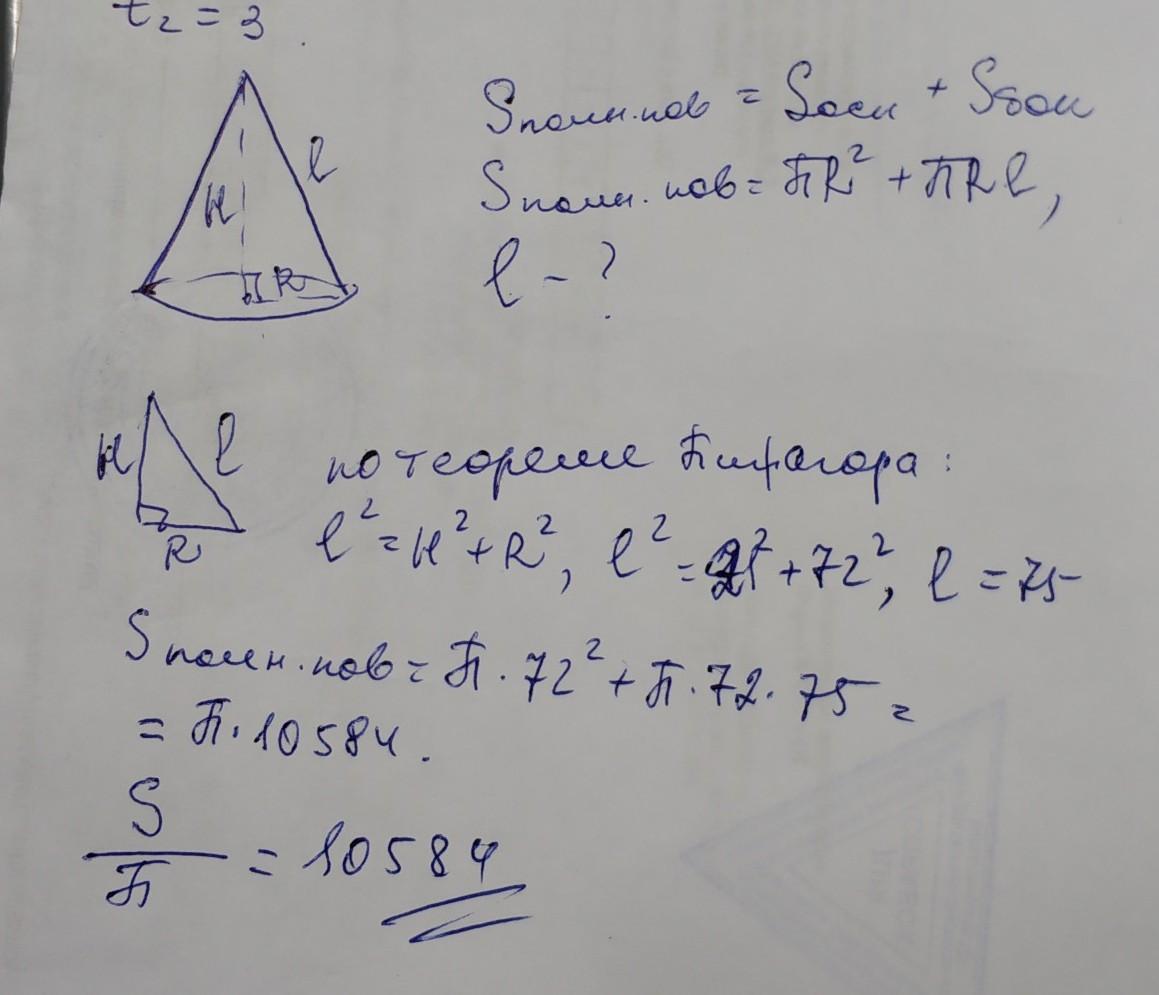 t₂ = 3.
H
l
R
Sполн.пов = Sосн + Sбок
Sполн.пов = πR² + πRl,
l - ?
H
l
R
по теореме Пифагора:
l² = H² + R², l² = 21² + 72², l = 75
Sполн.пов = π · 72² + π · 72 · 75 =
= π · 10584.
S
π
= 10584